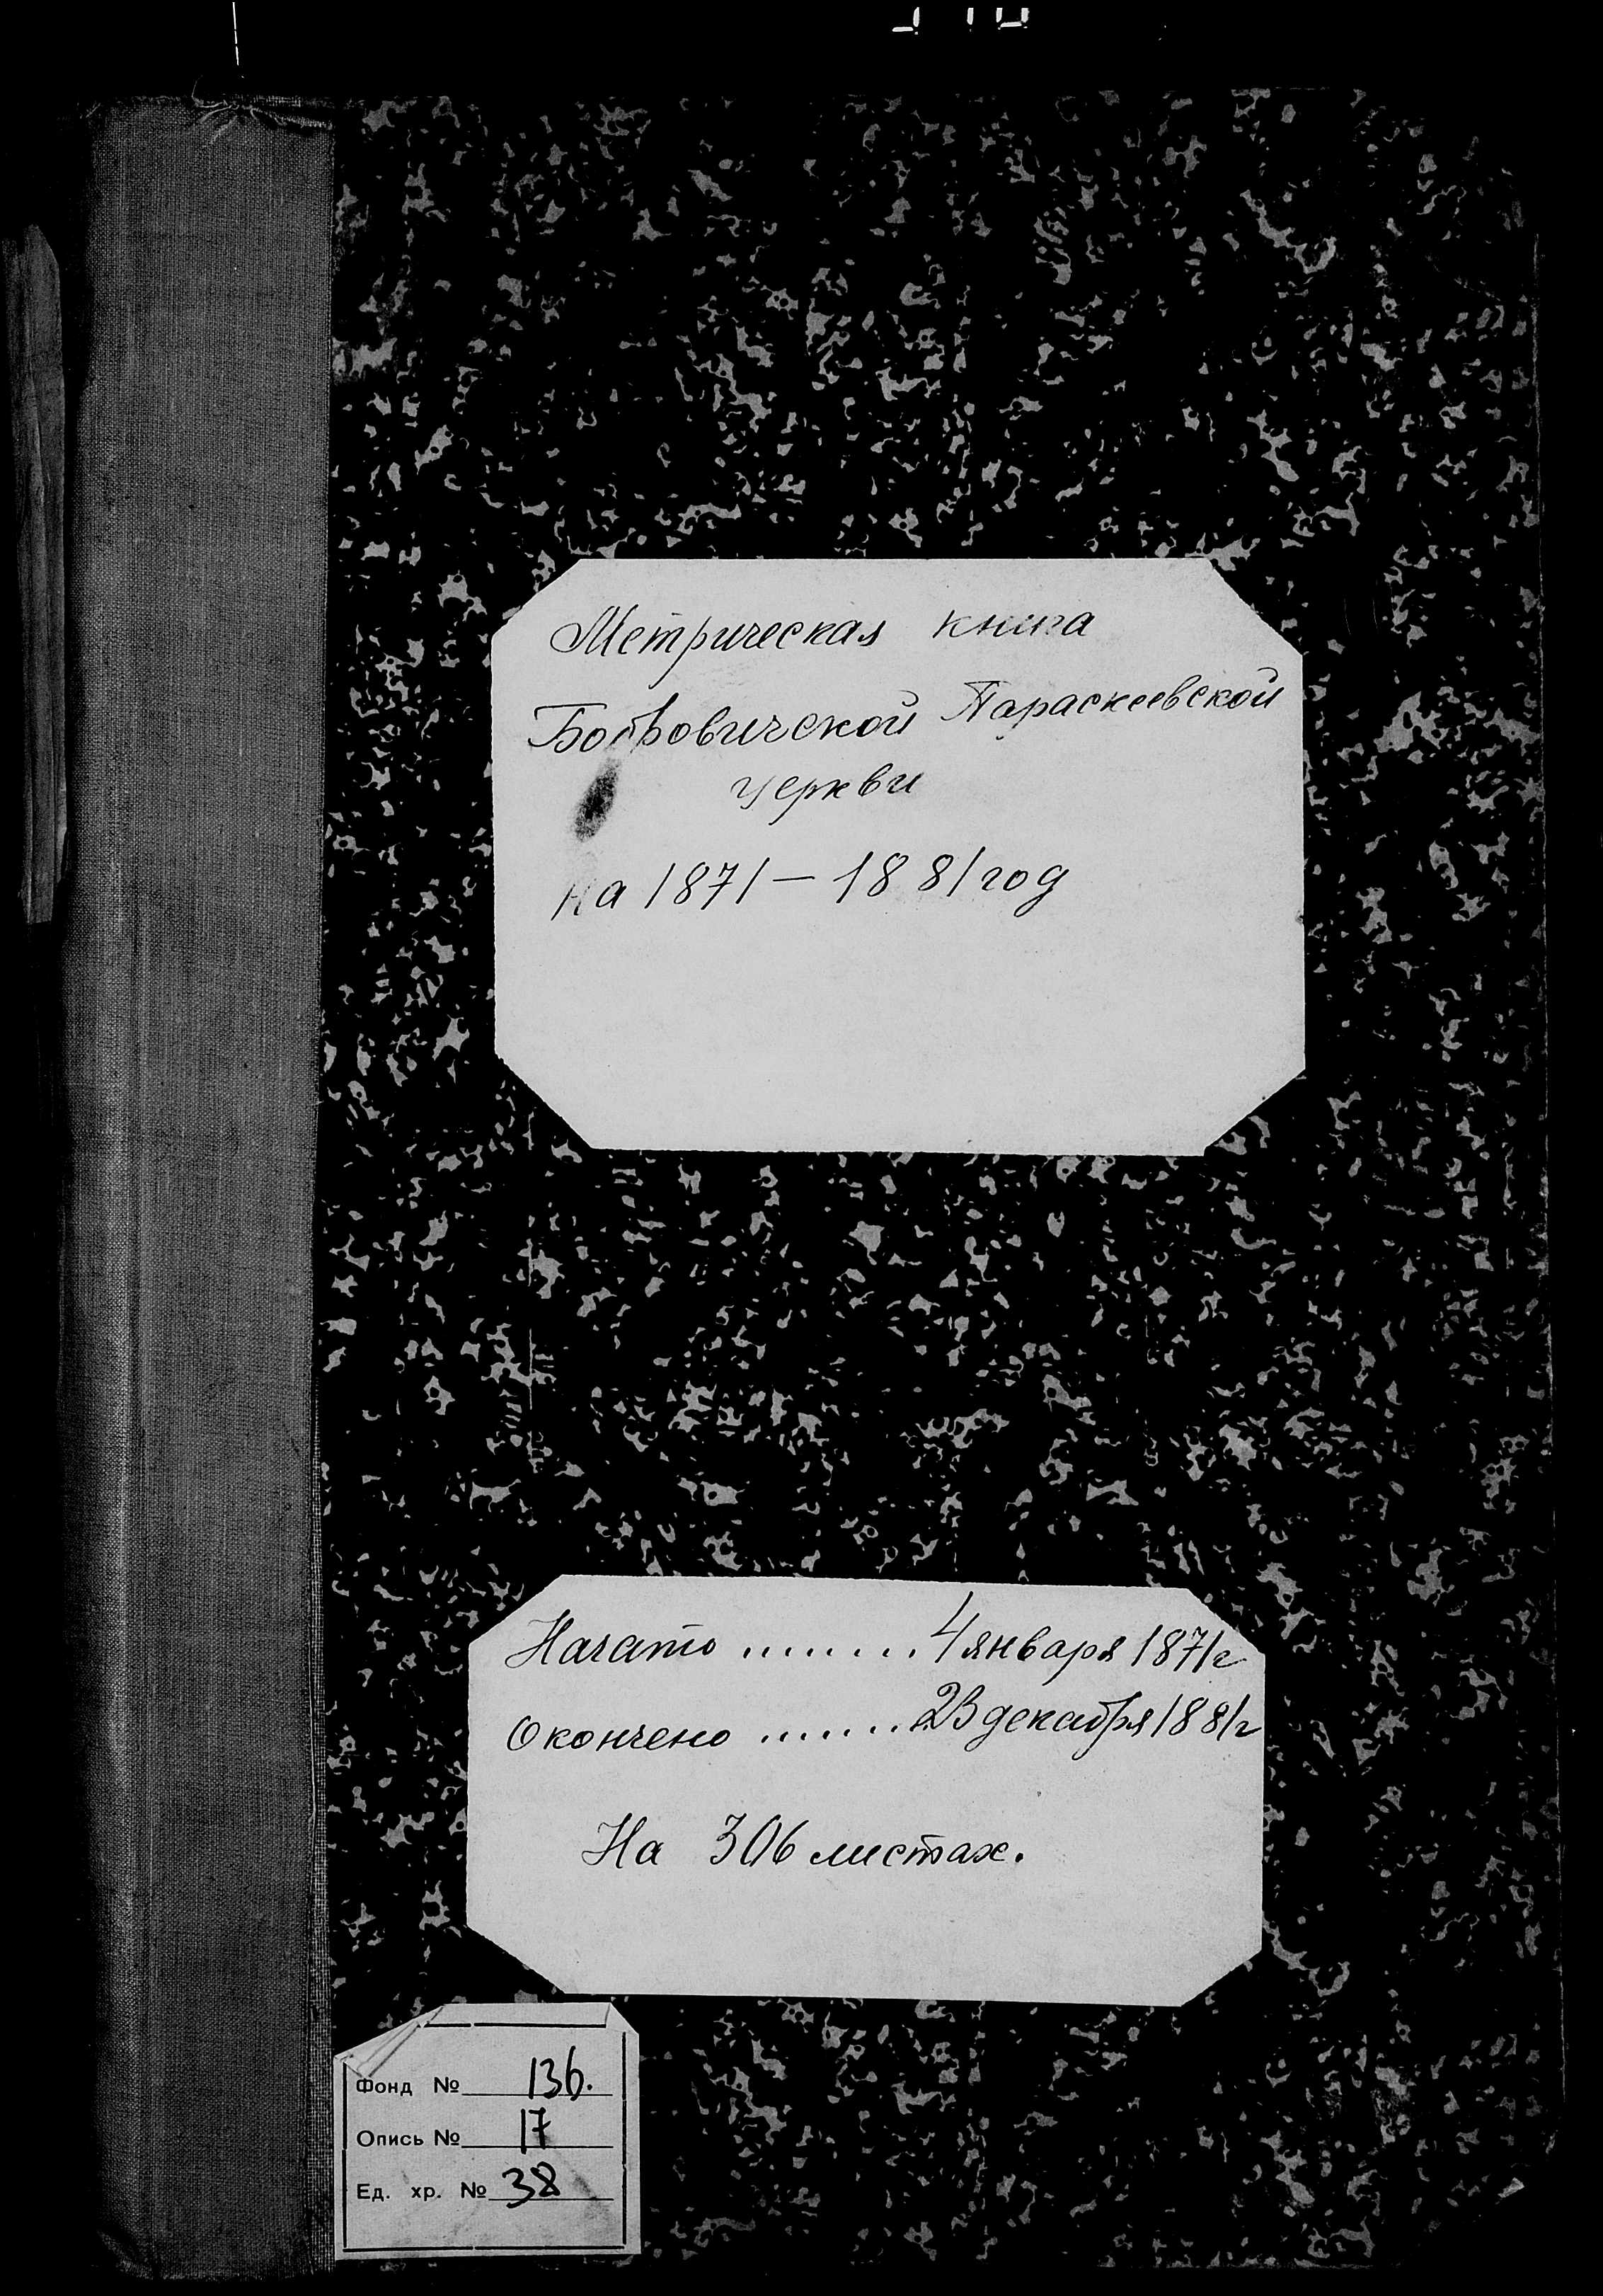 Метрическая книга
Бобровичской Параскеевской
церкви
на 1871 – 1881 год
Начато ........ 4 января 1871 г
Окончено ....... 23 декабря 1881 г
На 306 листах.
Фонд № 136.
Опись № 17
Ед. хр. № 38